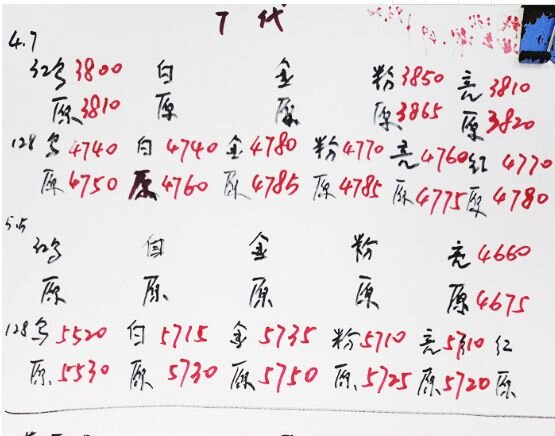 7代
4.7
32乌3800 白 金 粉3850 亮3810
原3810 原 原 原3865 原3820
128乌4740 白4740 金4780 粉4770 亮4760 红4770
原4750 原4760 原4785 原4785 原4775 原4780
5.5
32乌 白 金 粉 亮4660
原 原 原 原 原4675
128乌5520 白5715 金5735 粉5710 亮5710 红
原5530 原5730 原5750 原5725 原5720 原